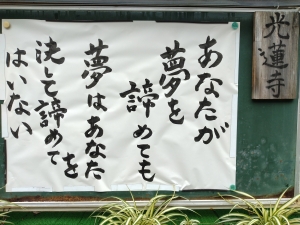 光蓮寺
あなたが
夢を
諦めても
夢はあなた
を
決して諦めて
はいない